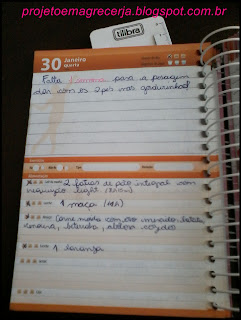 projetoemagrecerja.blogspot.com.br
tilibra
30 Janeiro
quarta
Falta 1 semana para a pesagem
dar com os 2 pés nas gordurinhas!
2 fatias de pão integral com
requeijão light
1 maçã
Carne moída com ovo mexido, batata,
cenoura, beterraba, abóbora cozidos
1 laranja